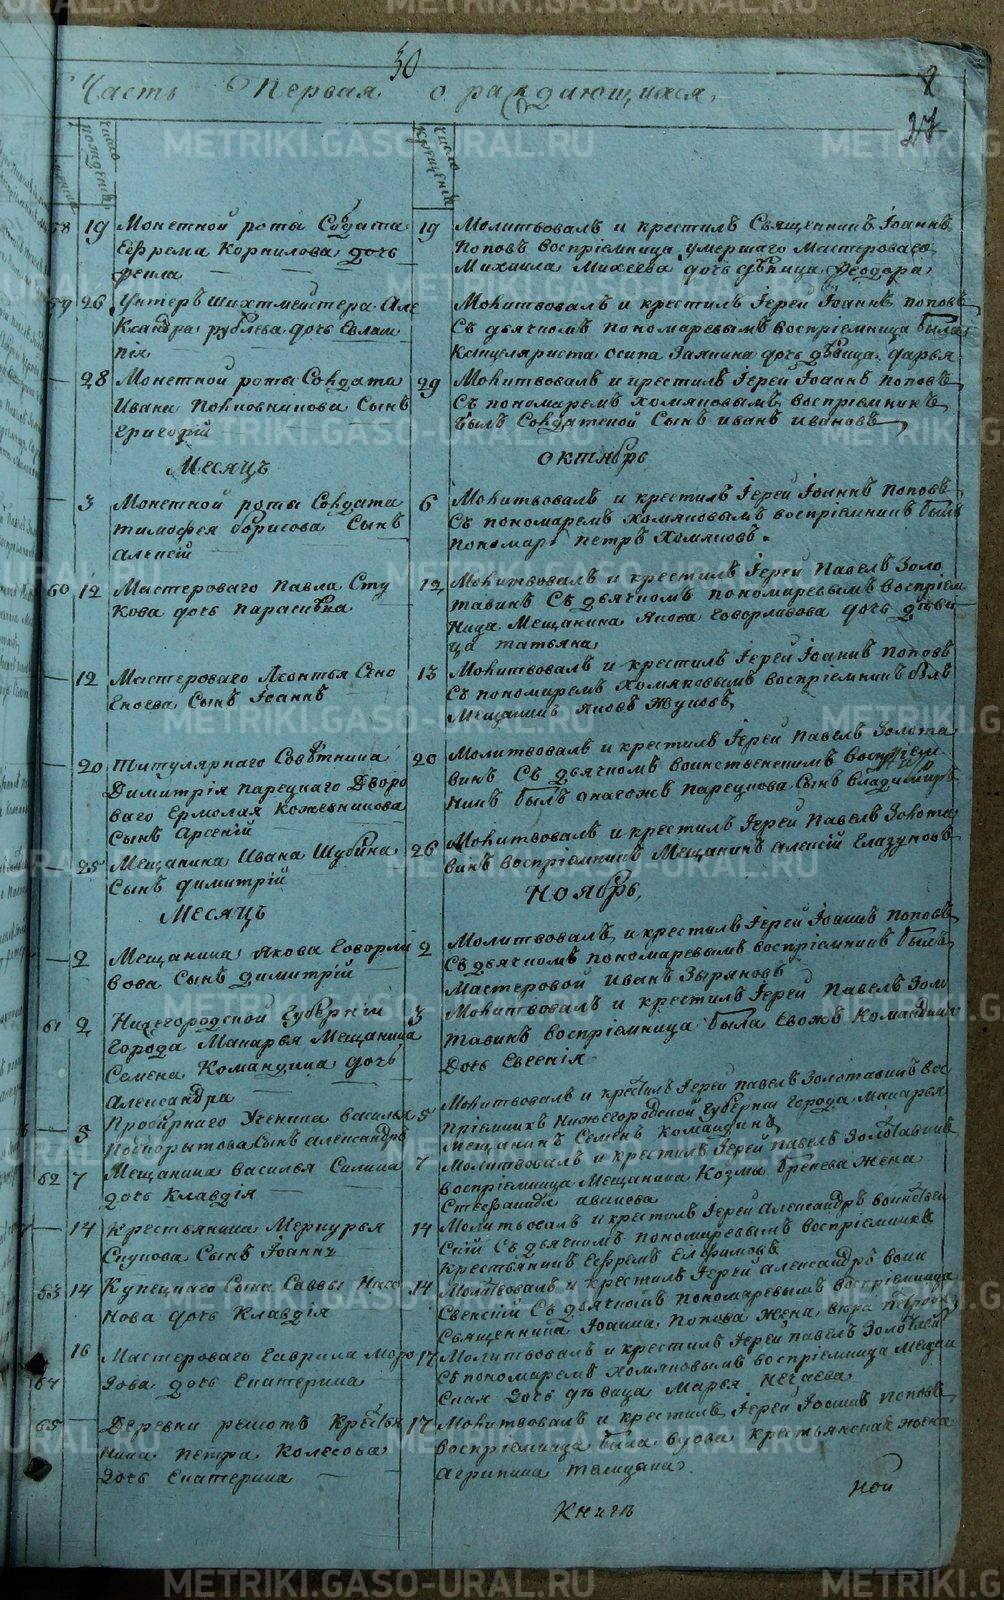 30
Часть Первая о раждающихся,
27
число рожденій
число крещеній
58 19 Монетной роты Солдата
Ефрема Корнилова дочь
19 Молитвовалъ и крестилъ Священникъ Іоаннъ
Поповъ воспріемница умершаго Мастероваго
Михаила Михеева дочь дѣвица Феодора
59 26 Унтеръ шихтмейстера Але
ксандра рублева дочь Евлам
пія
Молитвовалъ и крестилъ Іерей Іоаннъ поповъ
Съ дьячкомъ пономаревымъ воспріемница была
Канцеляриста осипа Заякина дочь дѣвица дарья
28 Монетной роты Солдата
Ивана Полковникова Сынъ
григорій
29 Молитвовалъ и крестилъ Іерей Іоаннъ поповъ
Съ пономаремъ хомяковымъ воспріемникъ
былъ Солдатской Сынъ иванъ ивановъ
Месяцъ октябрь
3 Монетной роты Солдата
тимофея борисова Сынъ
алексій
6 Молитвовалъ и крестилъ Іерей Іоаннъ поповъ
Съ пономаремъ Хомяковымъ воспріемникъ былъ
пономарь петръ Хомяковъ.
60 12 Мастероваго Павла Сту
кова дочь парасковья
12 Молитвовалъ и крестилъ Іерей Павелъ Золо
тавинъ Съ дьячкомъ пономаревымъ воспріем
ница Мещанина Якова говорливова дочь дѣви
ца татьяна
12 Мастероваго Леонтья Сѣно
Сынъ Іоаннъ
13 Молитвовалъ и крестилъ Іерей Іоаннъ поповъ
Съ пономаремъ хомяковымъ воспріемникъ былъ
Мещанинъ Яковъ Жуковъ,
20 титулярнаго Совѣтника
Димитрія дворо
ваго Ермолая Кожевникова
Сынъ Арсеній
20 Молитвовалъ и крестилъ Іерей Павелъ Золота
винъ Съ дьячкомъ воинственскимъ воспріем
никъ былъ онагожъ Сынъ владимиръ
25 Мещанина Ивана Шубина
Сынъ димитрій
26 Молитвовалъ и крестилъ Іерей Павелъ Золота
винъ воспріемникъ Мещанинъ алексій Глазуновъ
Месяцъ Ноябрь,
2 Мещанина Якова говорли
вова Сынъ димитрій
2 Молитвовалъ и крестилъ Іерей Іоаннъ поповъ
Съ дьячкомъ пономаревымъ воспріемникъ былъ
Мастеровой Иванъ Зыряновъ
61 2 Нижегородской губерніи
города Макарья Мещанина
Семена Командина дочь
Александра
3 Молитвовалъ и крестилъ Іерей Павелъ Золо
тавинъ воспріемница была Евожъ Командина
дочь Евгенія
5 Пробирнаго Ученика василья
Подкорытова Сынъ александръ
5 Молитвовалъ и крестилъ Іерей павелъ Золотавинъ вос
пріемникъ нижегородской губерніи города макарья
мещанинъ Семенъ командинъ,
62 7 Мещанина василья Силина
дочь Клавдія
7 Молитвовалъ и крестилъ Іерей Павелъ Золотавинъ
воспріемница мещанина Козмы жена
Стефанида
14 Крестьянина Меркурья
Скупова Сынъ Іоаннъ
14 Молитвовалъ и крестилъ Іерей Александръ воинствен
скій Съ дьячкомъ пономаревымъ воспріемникъ
Крестьянинъ Ефремъ Елфимовъ
63 14 Купецкаго Сына Саввы
дочь Клавдія
14 Молитвовалъ и крестилъ Іерей Александръ воин
ственскій Съ дьячкомъ пономаревымъ воспріемница
Священника Іоанна Попова жена вѣра петрова
64 16 Мастероваго гаврила Моро
зова дочь екатерина
17 Молитвовалъ и крестилъ Іерей павелъ Золотавинъ
Съ пономаремъ хомяковымъ воспріемница мещан
ская дочь дѣвица Марья нечаева
65 деревни решотъ Крестья
нина Петра Колесова
дочь Екатерина
17 Молитвовалъ и крестилъ Іерей Іоаннъ поповъ
воспріемница была вдова крестьянская жена
агрипина
Книгъ ной
METRIKI.GASO-URAL.RU